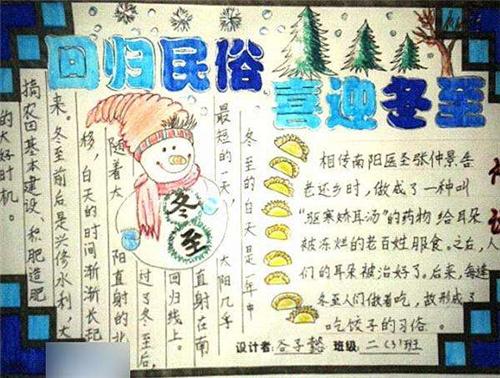 回归民俗
喜迎冬至
冬至的白天是一年中
最短的一天，太阳几乎
直射在南
回归线上。
过了冬至后，
随着太阳直射的北
移，白天的时间渐渐长起
来。冬至前后是兴修水利，大
搞农田基本建设、积肥造肥
的大好时机。
冬至
相传南阳医圣张仲景告
老还乡时，做成了一种叫
“驱寒娇耳汤”的药物给耳朵
被冻烂的老百姓服食。之后，人
们的耳朵被治好了。后来，每逢
冬至人们做着吃，故形成了
吃饺子的习俗。
设计者：谷子懿 班级：二（3）班